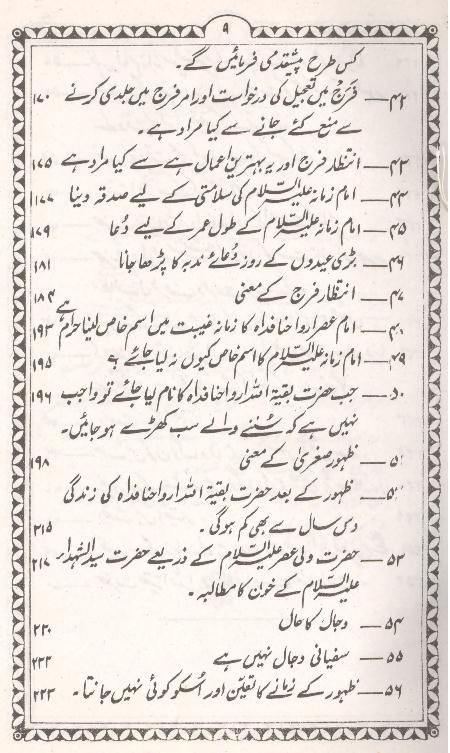 ۹
کس طرح پیشقدمی فرمائیں گے۔
۴۲ــ فَرَج میں تعجیل کی درخواست اور امر فرج میں جلدی کرنے ۱۷۰
سے منع کئے جانے سے کیا مراد ہے۔
۴۳ــ انتظار فرج اور یہ بہترین اعمال ہے سے کیا مراد ہے ۱۷۵
۴۴ــ امام زمانہ علیہ السّلام کی سلامتی کے لیے صدقہ دینا ۱۷۷
۴۵ــ امام زمانہ علیہ السّلام کے طول عمر کے لیے دُعا ۱۷۹
۴۶ــ بڑی عیدوں کے روز دُعائے ندبہ کا پڑھا جانا ۱۸۱
۴۷ــ انتظار فرج کے معنی ۱۸۴
۴۸ــ امام عصر ارواحنا فداہ کا زمانہ غیبت میں اسم خاص لینا حرام ہے ۱۹۳
۴۹ــ امام زمانہ علیہ السّلام کا اسم خاص کیوں نہ لیا جائے ؟ ۱۹۵
۵۰ــ جب حضرت بقیۃ اللہ ارواحنا فداہ کا نام لیا جائے تو واجب ۱۹۶
نہیں ہے کہ سُننے والے سب کھڑے ہو جائیں۔
۵۱ــ ظہور صغریٰ کے معنی ۱۹۸
۵۲ــ ظہور کے بعد حضرت بقیۃ اللہ ارواحنا فداہ کی زندگی
دس سال سے بھی کم ہوگی۔ ۲۱۵
۵۳ــ حضرت ولی عصر علیہ السّلام کے ذریعے حضرت سید الشہداء ۲۱۷
علیہ السّلام کے خون کا مطالبہ۔
۵۴ــ دجال کا حال ۲۲۰
۵۵ــ سفیانی دجال نہیں ہے ۲۲۲
۵۶ــ ظہور کے زمانے کا تعیّن اور اُسکو کوئی نہیں جانتا۔ ۲۲۳